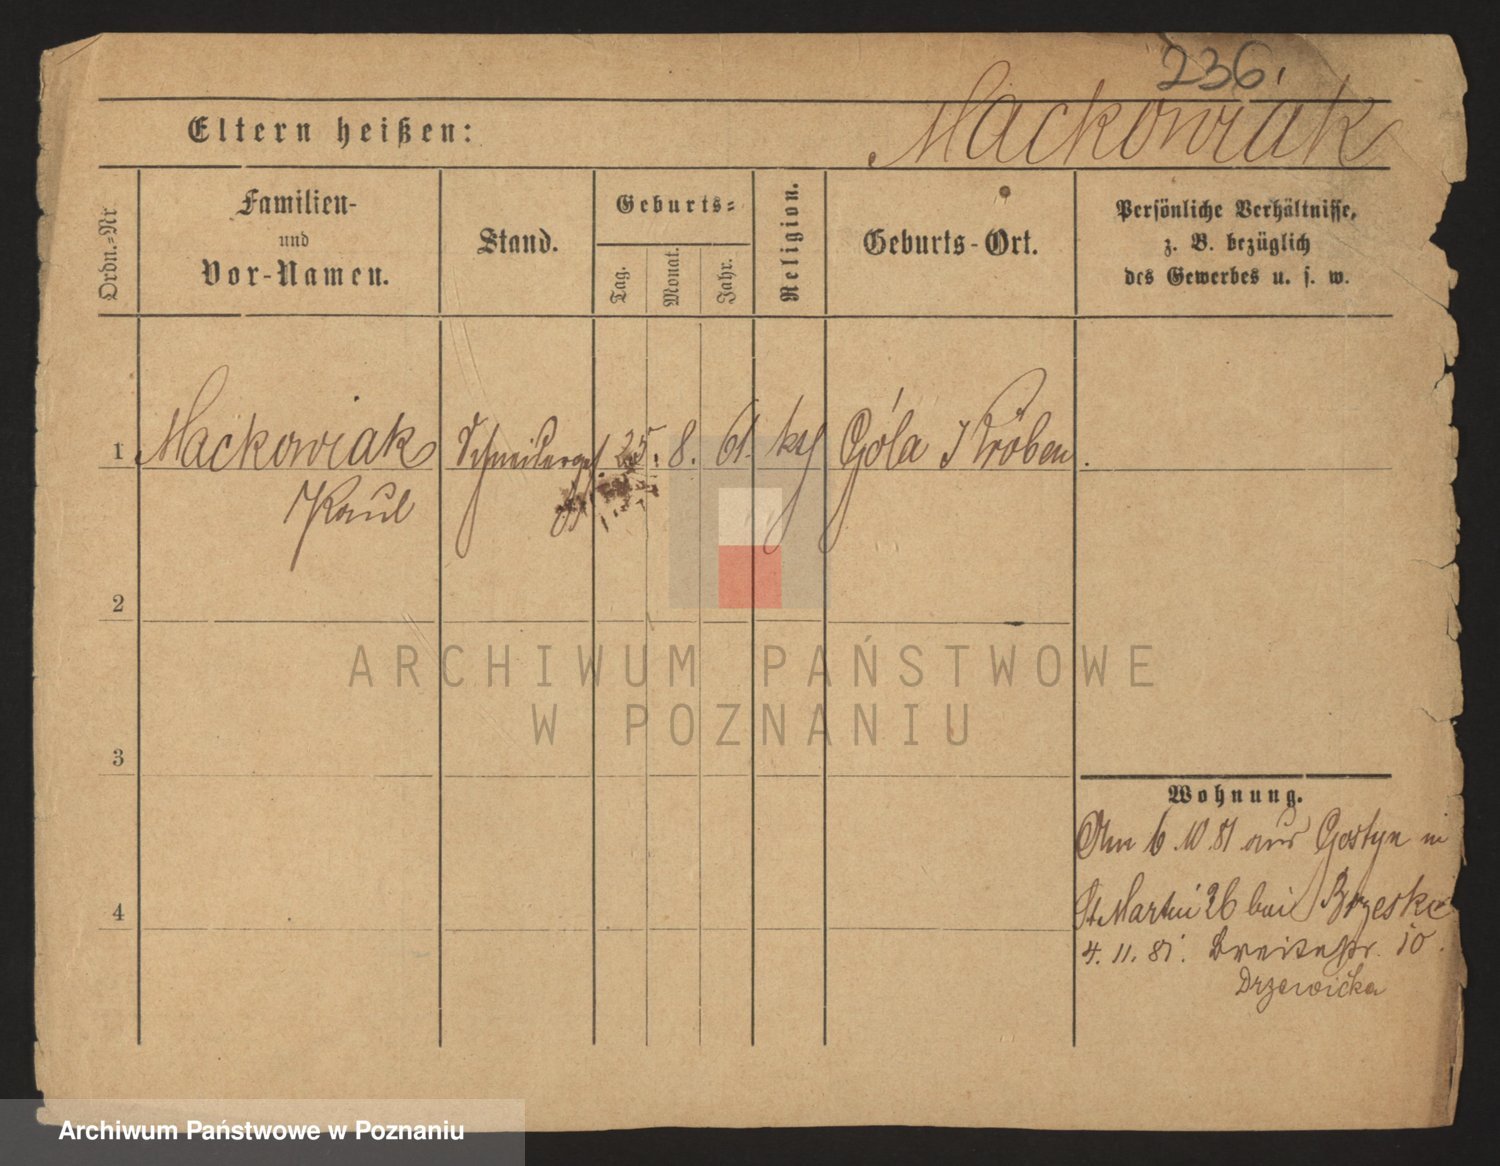 236.
Eltern heißen:
Mackowiak
Ordn.-Nr
Familien-
und
Vor-Namen.
Stand.
Geburts-
Tag.
Monat.
Jahr.
Religion.
Geburts-Ort.
Persönliche Verhältnisse,
z. B. bezüglich
des Gewerbes u. s. w.
1 Mackowiak Schneiderges 25. 8. 61. kth Góla Kröben.
Paul
2
3
4
Wohnung.
Am 6.10.81 aus Gostyn in
St Martin 26 bei Brzeski
4. 11. 81. Breitestr. 10.
Drzewicka
ARCHIWUM PAŃSTWOWE
W POZNANIU
Archiwum Państwowe w Poznaniu